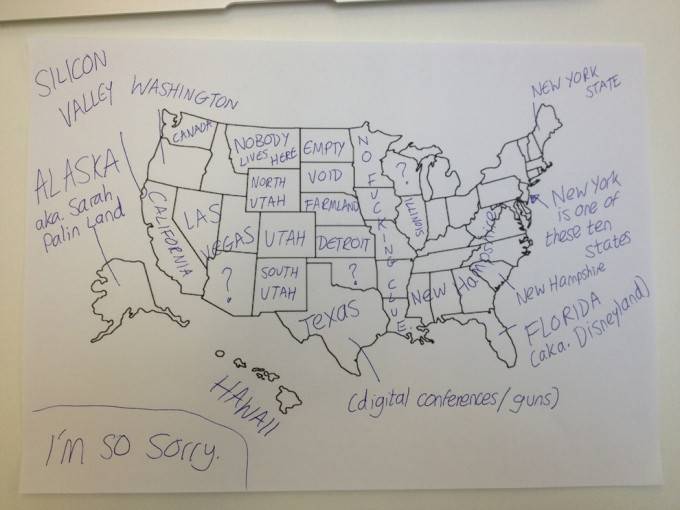 SILICON
VALLEY
WASHINGTON
NEW YORK
STATE
CANADA
NOBODY
LIVES HERE
EMPTY
NO FUCKING CLUE.
?
ALASKA
aka. Sarah
Palin Land
NORTH
UTAH
VOID
FARMLAND
ILLINOIS
New York
is one of
these ten
states
CALIFORNIA
LAS
VEGAS
UTAH
DETROIT
New Hampshire
?
SOUTH
UTAH
?
NEW Hampshire
Texas
FLORIDA
(aka. Disneyland)
HAWAII
(digital conferences/guns)
I'm so sorry.